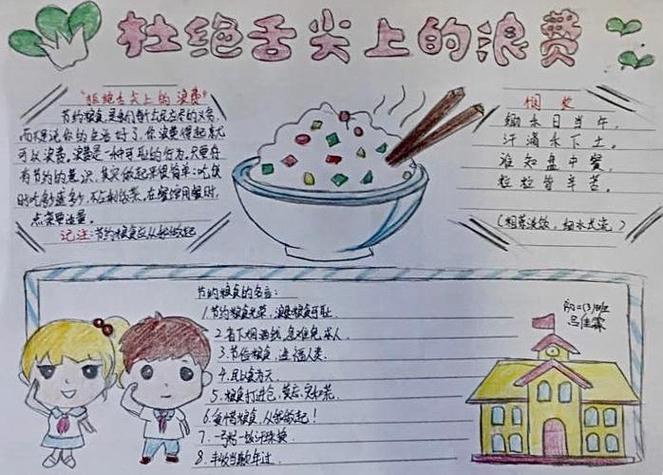 杜绝舌尖上的浪费
"拒绝舌尖上的浪费"
节约粮食,是我们每个公民应尽的义务,
而不是说你的生活好了,你浪费得起就
可以浪费。浪费是一种可耻的行为,只要存
有节约的意识,其实做起来很简单:吃饭
时吃多少盛多少,不剩饭菜,在餐馆用餐时,
点菜要适量。
记注:节约粮食应从我做起
悯农
锄禾日当午,
汗滴禾下土。
谁知盘中餐,
粒粒皆辛苦。
(粗茶淡饭,细水长流。)
节约粮食的名言:
1.节约粮食光荣,浪费粮食可耻.
2.省下烟酒钱,急难免求人.
3.节俭粮食,造福人类.
4.民以食为天.
5.粮食打进仓,莫忘灾和荒.
6.爱惜粮食,从我做起!
7.一粥一饭汗珠换
8.丰收当歉年过.
初一(3)班